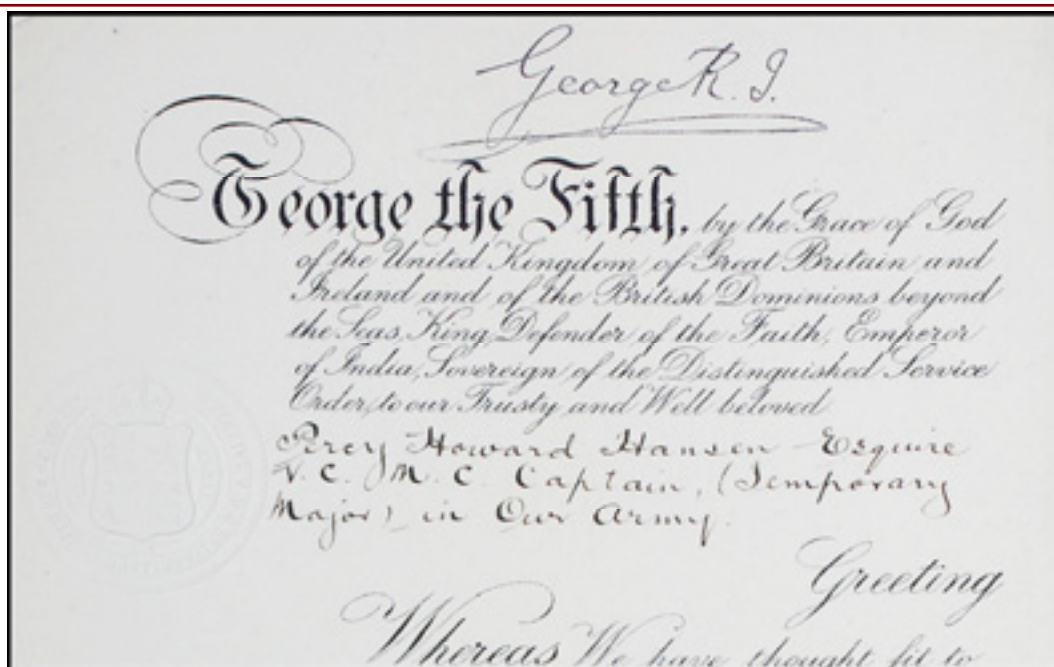 George R. I.
George the Fifth, by the Grace of God
of the United Kingdom of Great Britain and
Ireland and of the British Dominions beyond
the Seas, King, Defender of the Faith, Emperor
of India, Sovereign of the Distinguished Service
Order, to our Trusty and Well beloved
Percy Howard Hansen Esquire
V. C. M. C. Captain, (Temporary
Major) in Our Army.
Greeting
Whereas We have thought fit to